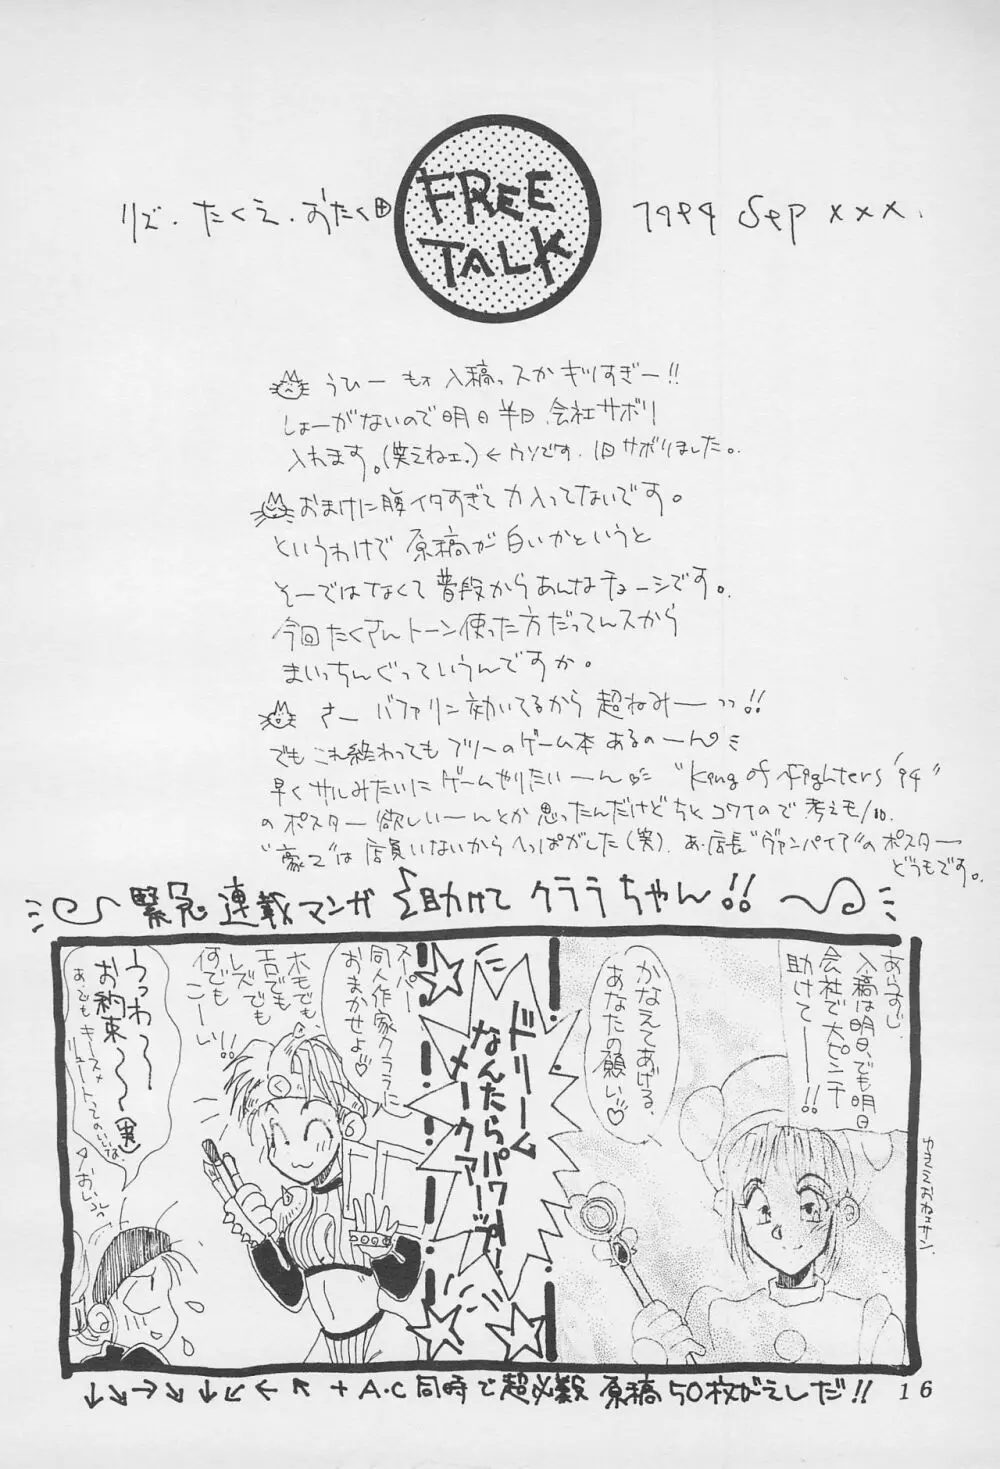 FREE
TALK
リズ・たくえ・おたく田
1994 Sep xxx.
うひー もォ入稿っスかギリすぎー!!
しょーがないので明日半日、会社サボリ
入れます。(笑えねェ。)←ウソです。1日サボりました。
おまけに腹イタすぎて力入ってないです。
というわけで原稿が白いかというと
そーではなくて普段からあんなチョーシです。
今回たくさんトーン使った方だってんスから
まいっちんぐっていうんですか。
さー バファリン効いてるから超ねみーーっっ!!
でもこれ終わってもフリーのゲーム本あるのーん
早くサルみたいにゲームやりたいーん "King of Fighters '94"
のポスター欲しいーんとか思ったんだけどちとコワイので考え
"豪Z"は店員いないからへっぱがした(笑)。あ、店長"ヴァンパイア"のポスター
どうもです。
緊急連載マンガ 助けて クララちゃん!!
あらすじ
入稿は明日、でも明日
会社で大ピンチ
助けてーー!!
かなえてあげる。
あなたの願い♡
ドリーム
なんたらパワー!
メークアーップ!!
スーパー
同人作家クララに
おまかせよ♡
ホモでも、
エロでも
レズでも
何でも
こーい!!
うっわ〜
お約束〜〜(実)
↓↘→↘↓↙←↖+A・C同時で超必殺 原稿50枚がえしだ!!
16